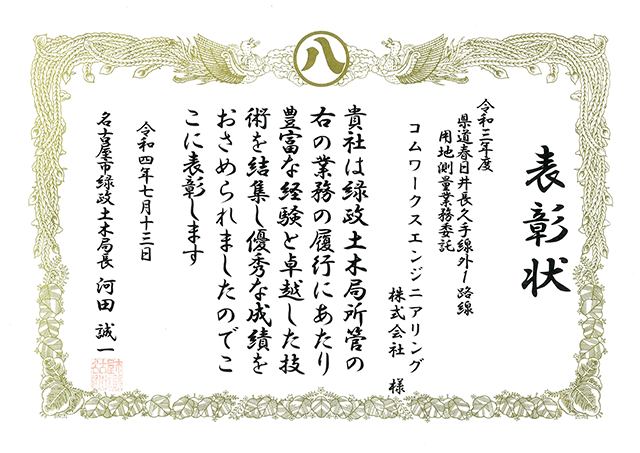 八
表彰状
令和三年度
県道春日井長久手線外1路線
用地測量業務委託
コムワークスエンジニアリング
株式会社 様
貴社は緑政土木局所管の
右の業務の履行にあたり
豊富な経験と卓越した技
術を結集し優秀な成績を
おさめられましたのでこ
こに表彰します
令和四年七月十三日
名古屋市緑政土木局長 河田誠一